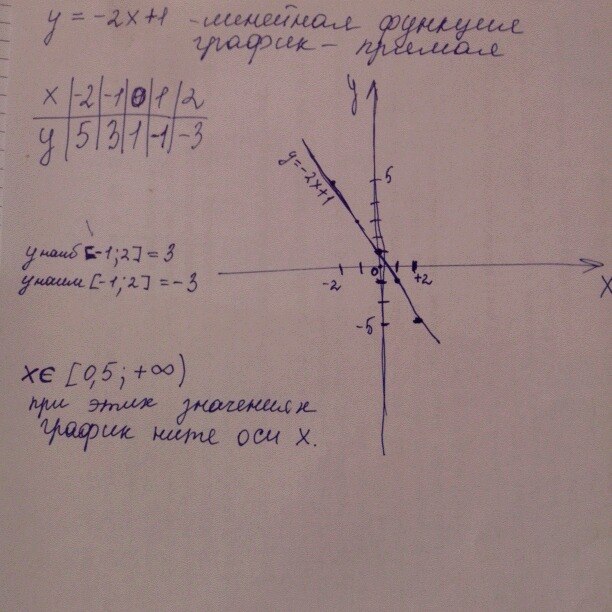 y = -2x+1 - линейная функция
график - прямая
x | -2 | -1 | 0 | 1 | 2
y | 5 | 3 | 1 | -1 | -3
y
5
y=-2x+1
y наиб [-1;2] = 3
y наим [-1;2] = -3
-2 0 +2 X
-5
x∈ [0,5; +∞)
при этих значениях
график ниже оси x.